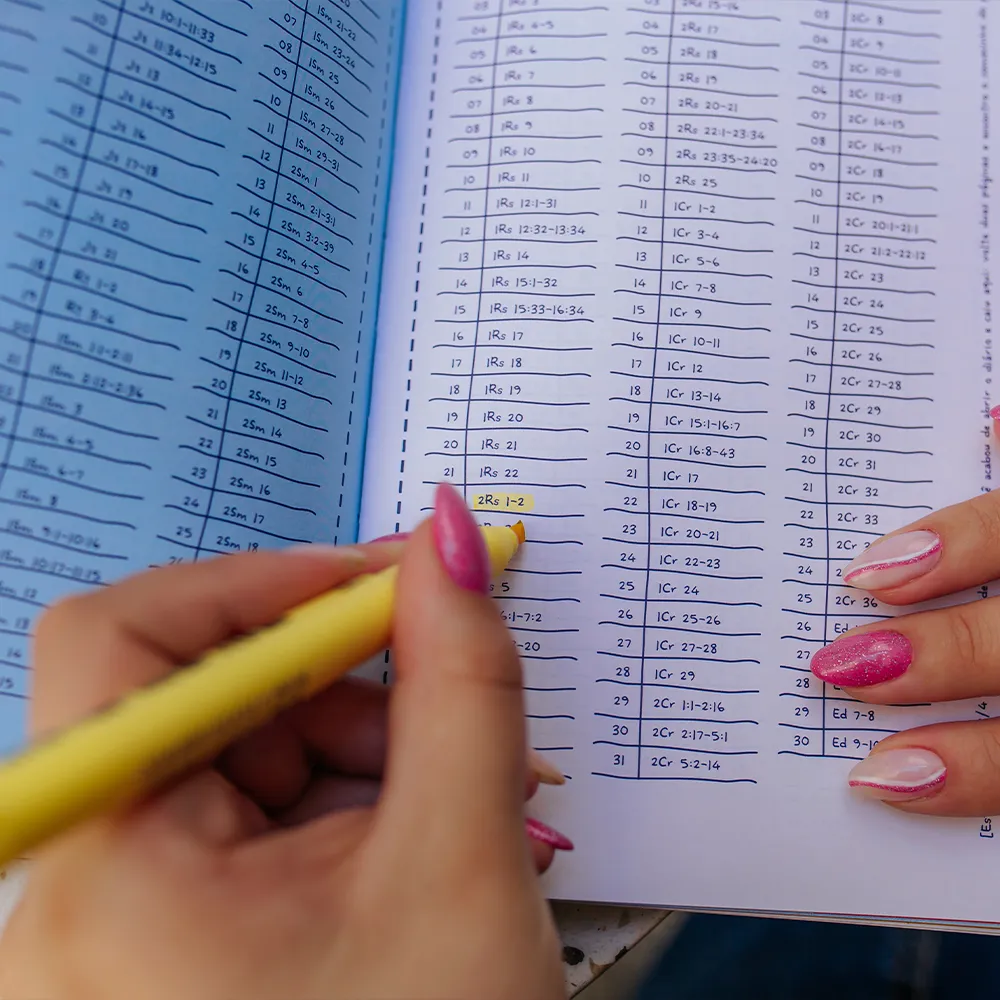 10 Jz 10:1-11:33
11 Jz 11:34-12:15
12 Jz 13
13 Jz 14-15
14 Jz 16
Jz 17-18
15 Jz 19
16 Jz 20
17 Jz 21
18 Rt 1-2
19 Rt 3-4
1Sm 1:1-2:11
1Sm 2:12-2:36
1Sm 3
1Sm 4-5
1Sm 6-7
1Sm 8
1Sm 9:1-10:16
1Sm 10:17-11:15
07 1Sm 21-22
08 1Sm 23-24
09 1Sm 25
10 1Sm 26
11 1Sm 27-28
12 1Sm 29-31
13 2Sm 1
14 2Sm 2:1-3:1
15 2Sm 3:2-39
16 2Sm 4-5
17 2Sm 6
18 2Sm 7-8
19 2Sm 9-10
20 2Sm 11-12
21 2Sm 13
22 2Sm 14
23 2Sm 15
24 2Sm 16
25 2Sm 17
2Sm 18
03 1Rs 3
04 1Rs 4-5
05 1Rs 6
06 1Rs 7
07 1Rs 8
08 1Rs 9
09 1Rs 10
10 1Rs 11
11 1Rs 12:1-31
12 1Rs 12:32-13:34
13 1Rs 14
14 1Rs 15:1-32
15 1Rs 15:33-16:34
16 1Rs 17
17 1Rs 18
18 1Rs 19
19 1Rs 20
20 1Rs 21
21 1Rs 22
2Rs 1-2
5
6:1-7:2
-20
03 2Rs 15-16
04 2Rs 17
05 2Rs 18
06 2Rs 19
07 2Rs 20-21
08 2Rs 22:1-23:34
09 2Rs 23:35-24:20
10 2Rs 25
11 1Cr 1-2
12 1Cr 3-4
13 1Cr 5-6
14 1Cr 7-8
15 1Cr 9
16 1Cr 10-11
17 1Cr 12
18 1Cr 13-14
19 1Cr 15:1-16:7
20 1Cr 16:8-43
21 1Cr 17
22 1Cr 18-19
23 1Cr 20-21
24 1Cr 22-23
25 1Cr 24
26 1Cr 25-26
27 1Cr 27-28
28 1Cr 29
29 2Cr 1:1-2:16
30 2Cr 2:17-5:1
31 2Cr 5:2-14
03 2Cr 8
04 2Cr 9
05 2Cr 10-11
06 2Cr 12-13
07 2Cr 14-15
08 2Cr 16-17
09 2Cr 18
10 2Cr 19
11 2Cr 20:1-21:1
12 2Cr 21:2-22:12
13 2Cr 23
14 2Cr 24
15 2Cr 25
16 2Cr 26
17 2Cr 27-28
18 2Cr 29
19 2Cr 30
20 2Cr 31
21 2Cr 32
22 2Cr 33
23 2Cr
24 2
25 2Cr 36
26 Ed
27
28
29 Ed 7-8
30 Ed 9-10
[Es acabou de abrir o diário e caiu aqui, volte duas páginas e encontre o caminho